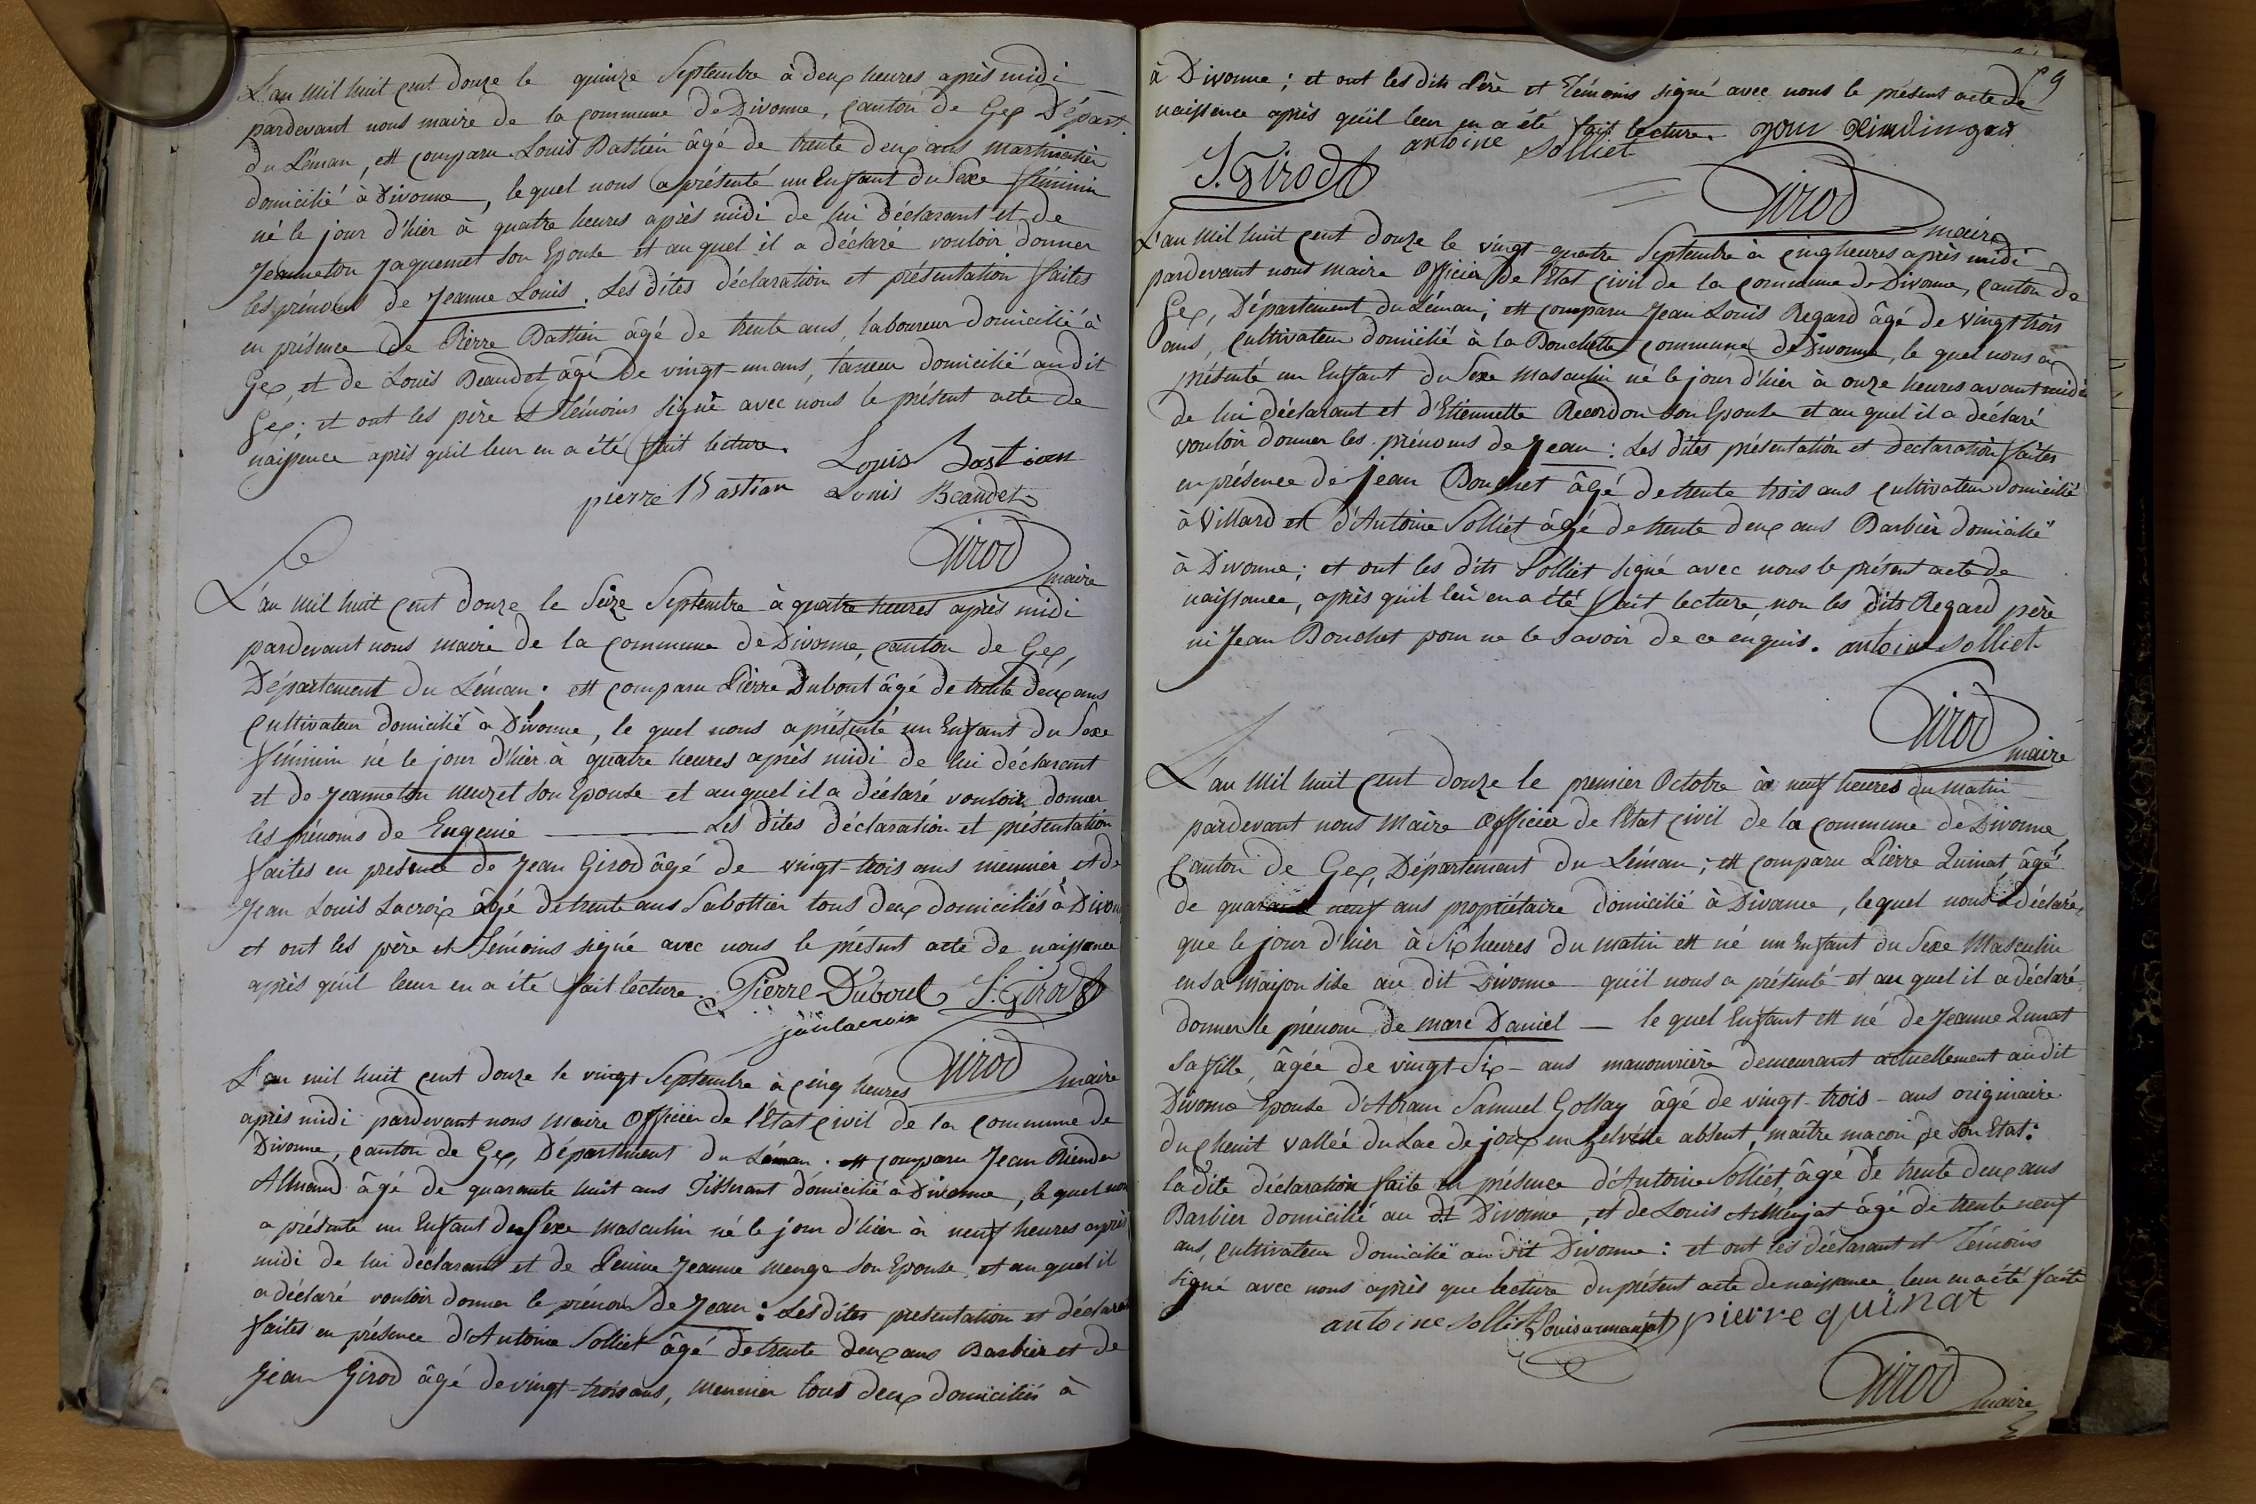 L'an mil huit cent douze le quinze Septembre à deux heures après midi
pardevant nous maire de la commune de Divonne, canton de Gex Départ.
du Léman, est comparu Louis Bastien âgé de trente deux ans
domicilié à Divonne, le quel nous a présenté un Enfant du Sexe féminin
né le jour d'hier à quatre heures après midi de lui Déclarant et de
Jeanneton Jaquemet son Epouse et auquel il a déclaré vouloir donner
les prénoms de Jeanne Louis. Les dites déclaration et présentation faites
en présence de Pierre Bastien âgé de trente ans, laboureur domicilié à
Gex, et de Louis Beaudet âgé de vingt-un ans, tanneur domicilié au dit
Gex; et ont les père et témoins signé avec nous le présent acte de
naissence après qu'il leur en a été fait lecture. Louis Bastian
pierre Bastian Louis Beaudet
Girod maire
L'an mil huit cent douze le Seize Septembre à quatre heures après midi
pardevant nous maire de la commune de Divonne, canton de Gex,
Département du Léman. est comparu Pierre Dubout âgé de trente deux ans
Cultivateur domicilié à Divonne, le quel nous a présenté un Enfant du Sexe
féminin né le jour d'hier à quatre heures après midi de lui déclarant
et de Jeanneton son Epouse et auquel il a déclaré vouloir donner
les prénoms de Eugenie Les dites déclaration et présentation
faites en presence de Jean Girod âgé de vingt-trois ans meunier et de
Jean Louis Lacroix âgé de trente ans Sabottier tous deux domiciliés à Divon
et ont les père et Témoins signé avec nous le présent acte de naissance
après qu'il leur en a été fait lecture. Pierre Dubout J. Girod
Girod maire
L'an mil huit cent douze le vingt Septembre à cinq heures
après midi pardevant nous Maire Officier de l'Etat civil de la commune de
Divonne, canton de Gex, Département du Léman. est comparu Jean
âgé de quarante huit ans Tisserant domicilié à Divonne, le quel nous
a présenté un Enfant du Sexe masculin né le jour d'hier à neuf heures après
midi de lui déclarant et de Jeanne Menge son Epouse, et auquel il
a déclaré vouloir donner le prénom de Jean: Les dites presentation et déclara
faites en présence d'Antoine Solliet âgé de trente deux ans Barbier et de
Jean Girod âgé de vingt-trois ans, meunier tous deux domiciliés à
59
à Divonne; et ont les dits Père et Témoins signé avec nous le présent acte de
naissence après qu'il leur en a été fait lecture.
antoine Solliet
J. Girod
Girod maire
L'an mil huit cent douze le vingt-quatre Septembre à cinq heures après midi
pardevant nous Maire Officier de l'Etat civil de la commune de Divonne, canton de
Gex, Département du Léman; est comparu Jean Louis Regard âgé de vingt trois
ans, Cultivateur domicilié à la Bouchette commune de Divonne, le quel nous a
présenté un Enfant du Sexe Masculin né le jour d'hier à onze heures avant midi
de lui déclarant et d'Etiennette Recordon son Epouse et auquel il a declaré
vouloir donner les prénoms de Jean: Les dites présentation et declaration faites
en présence de jean Bouchet âgé de trente trois ans cultivateur domicilié
à Villard et d'Antoine Solliet âgé de trente deux ans Barbier domicilié
à Divonne; et ont les dits Solliet signé avec nous le présent acte de
naissance, après qu'il leur en a été fait lecture, non les dits Regard père
ni Jean Bouchet pour ne le savoir de ce enquis. antoine Solliet
Girod maire
L'an Mil huit cent douze le premier Octobre à neuf heures du matin
pardevant nous Maire Officier de l'Etat civil de la commune de Divonne
Canton de Gex, Département du Léman; est comparu Pierre Quinat, âgé
de quarante neuf ans propriétaire domicilié à Divonne, le quel nous a déclaré,
que le jour d'hier à Six heures du matin est né un Enfant du Sexe Masculin
en sa maison sise au dit Divonne qu'il nous a présenté et au quel il a déclaré
donner le prénom de marc Daniel — le quel Enfant est né de Jeanne Quinat
Sa fille, âgée de vingt-Six - ans manouvrière demeurant actuellement au dit
Divonne Epouse d'Abram Samuel Gollay âgé de vingt-trois - ans originaire
du chenit vallée du Lac de joux en helvétie absent, maître macon de son Etat:
la dite déclaration faite en présence d'Antoine Solliet, âgé de trente deux ans
Barbier domicilié au dt Divonne, et de Louis Armenjat âgé de trente neuf
ans, cultivateur domicilié au dit Divonne: et ont les déclarant et Témoins
signé avec nous après que lecture du présent acte de naissance leur en a été faite
antoine solliet Louis armanjat pierre quinat
Girod maire